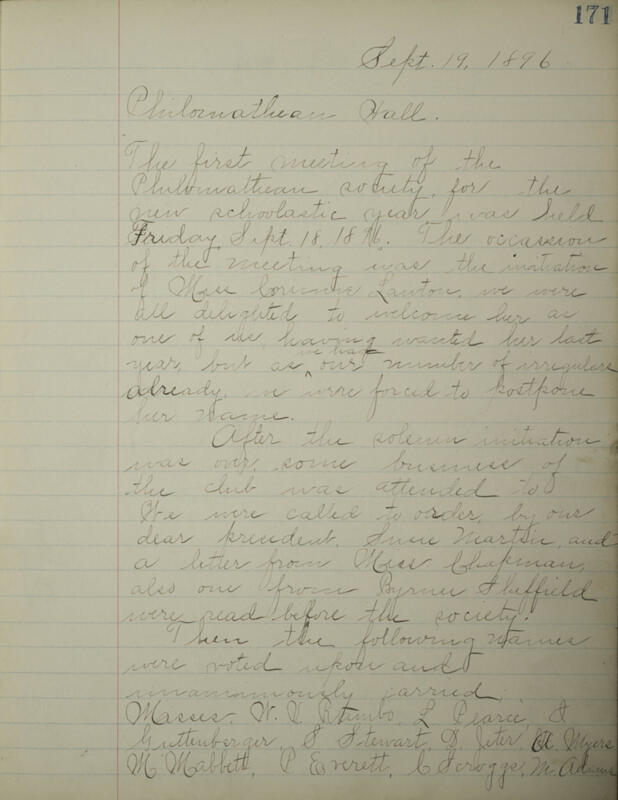 171
Sept. 19, 1896
Philomathean Hall.
The first meeting of the
Philomathean society, for the
new schoolastic year, was held
Friday Sept. 18, 1896. The occassion
of the meeting was the initiation
of Miss Corinne Lawton, we were
all delighted to welcome her as
one of us, having wanted her last
year, but as we had our number of irregulars
already, we were forced to postpone
her name.
After the solemn initiation
was over, some business of
the club was attended to
We were called to order, by our
dear president, Susie Martin, and
a letter from Miss Chapman,
also one from Byrnee Sheffield
were read before the society.
Then the following names
were voted upon and
unanimously carried,
Masses. W. V. L Pearce, I
Guttenberger, S Stewart, D. Jeter, A Myers
M Mabbett, P Everett, C Scroggs, M. Adams